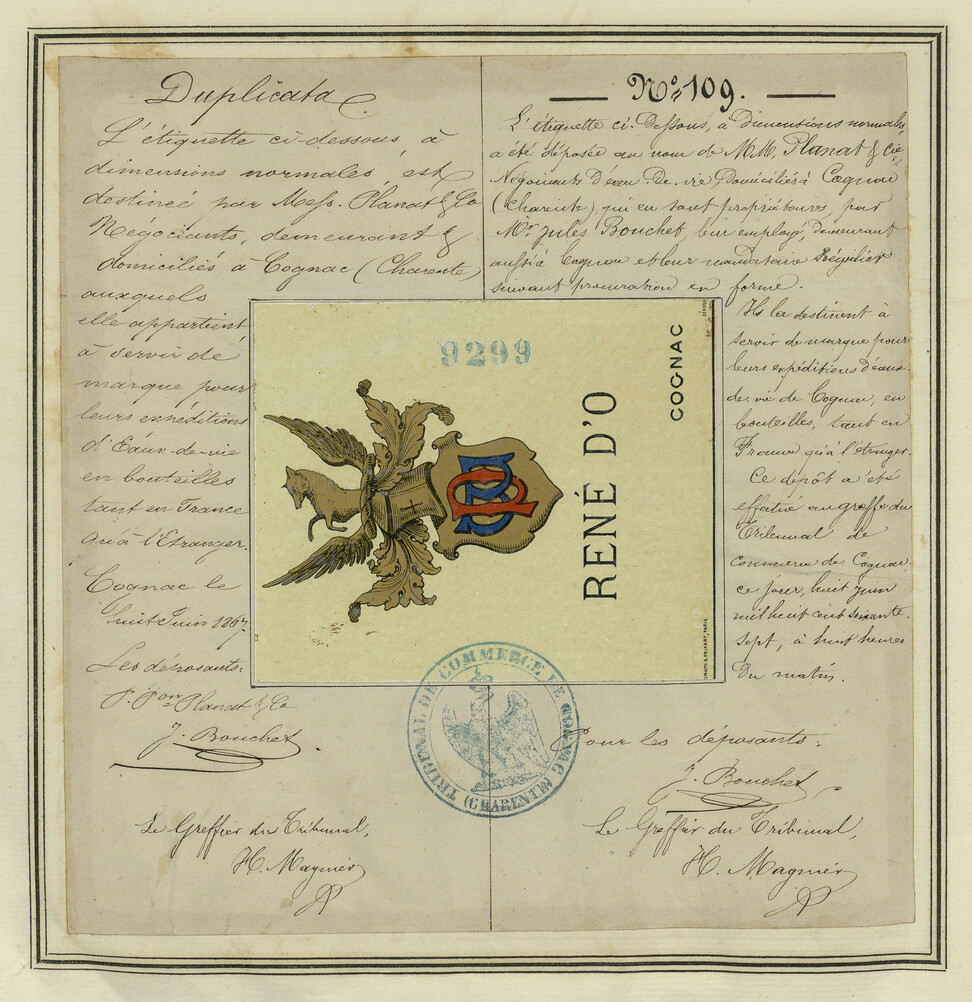 Duplicata
L'étiquette ci-dessous, à
dimensions normales, est
destinée par Mess. Planat & Co
Négociants, demeurant &
domiciliés à Cognac (Charente)
auxquels
elle appartient
à servir de
marque pour
leurs expéditions
d'Eaux-de-vie
en bouteilles
tant en France
qu'à l'Etranger.
Cognac le
huit Juin 1867.
Les déposants:
P. Pon Planat & Co
J. Bouchet.
Le Greffier du Tribunal,
H. Magnier
No 109.
L'étiquette ci-dessous, à dimensions normales,
a été déposée au nom de MM. Planat & Cie,
Négociants d'eau-de-vie, domiciliés à Cognac
(Charente), qui en sont propriétaires, par
Mr. Jules Bouchet, leur employé, demeurant
aussi à Cognac et leur mandataire régulier
suivant procuration en forme.
Ils la destinent à
servir de marque pour
leurs expéditions d'eaux-
de-vie de Cognac, en
bouteilles, tant en
France qu'à l'étranger.
Ce dépôt a été
effectué au greffe du
Tribunal de
commerce de Cognac,
ce jour, huit juin
mil huit cent soixante-
sept, à huit heures
du matin.
Pour les déposants:
J. Bouchet
Le Greffier du Tribunal,
H. Magnier
9299
RENÉ D'O
COGNAC
DÉPOSÉ
TRIBUNAL DE COMMERCE DE COGNAC
(CHARENTE)